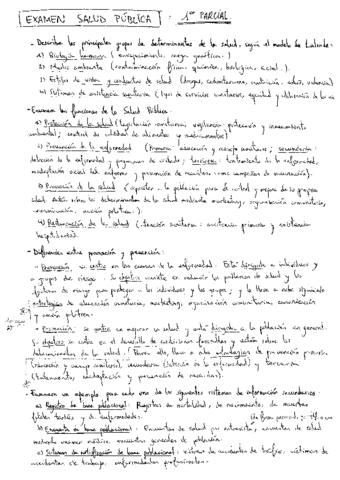 EXAMEN SALUD PÚBLICA : 1er PARCIAL
- Describe los principales grupos de determinantes de la salud, según el modelo de Lalonde:
a) Biología humana (envejecimiento, carga genética).
b) Medio ambiente (contaminación física, química, biológica, social).
c) Estilos de vida y conductas de salud (drogas, sedentarismo, nutrición, estrés, violencia)
d) Sistemas de asistencia sanitaria (tipo de servicios sanitarios, equidad y utilización de los
- Enumera las funciones de la Salud Pública:
a) Protección de la salud (legislación sanitaria, vigilancia, protección y saneamiento
ambiental; control de calidad de alimentos y medicamentos)
b) Prevención de la enfermedad (Primaria: educación y consejo sanitario; secundaria:
detección de la enfermedad y programas de cribado; terciaria: tratamiento de la enfermedad,
readaptación social del enfermo y prevención de recaídas
c) Promoción de la salud (capacitar a la población para el control y mejora de su propia
salud. Actúa sobre los determinantes de la salud mediante marketing, organización comunitaria,
comunicación, acción política).
d) Restauración de la salud (Atención sanitaria: asistencia primaria y asistencia
hospitalaria).
- Diferencias entre promoción y prevención:
- Prevención: se centra en las causas de la enfermedad. Está dirigida a individuos y
a grupos de riesgo. Su objetivo consiste en reducir los problemas de salud y los
factores de riesgo para proteger a los individuos y los grupos; y lo lleva a cabo siguiendo
estrategias de educación sanitaria, marketing, organización comunitaria, comunicación
y acción política.
- Promoción: se centra en mejorar la salud y está dirigida a la población en general.
Su objetivo se centra en el desarrollo de condiciones favorables y actúa sobre los
determinantes de la salud. Para ello, lleva a cabo estrategias de prevención primaria
(educación y consejo sanitario), secundaria (detección de la enfermedad) y terciaria
(tratamiento, readaptación y prevención de recaídas).
- Enumera un ejemplo para cada uno de los siguientes sistemas de información sanitarios:
a) Registro de base poblacional: Registros de mortalidad, de nacimiento, de muertes
fetales tardías y de enfermedades.
b) Encuesta de base poblacional: Encuestas de salud por entrevista, encuestas de salud
mediante examen médico, encuestas generales de población.
c) Sistemas de notificación de base poblacional: víctimas de accidentes de tráfico, víctimas de
accidentes de trabajo, enfermedades profesionales.